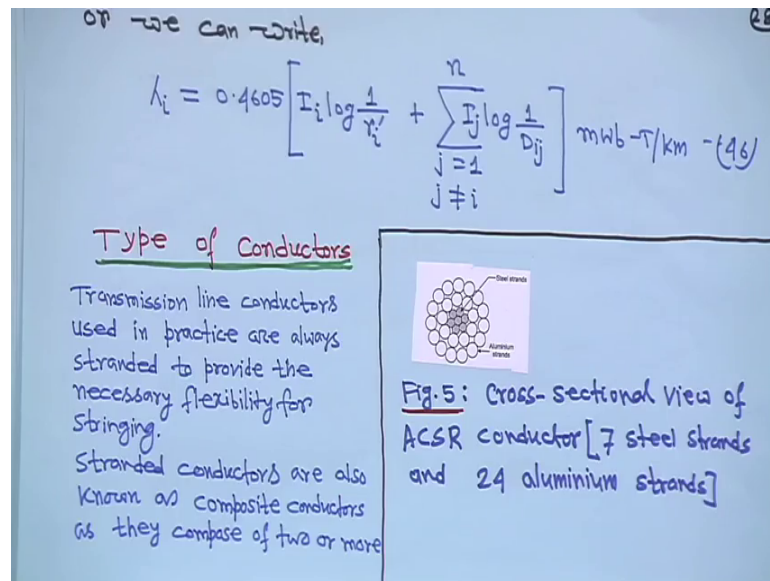 or we can write,
λi = 0.4605 [ Ii log 1/ri' + n∑j=1 j≠i Ij log 1/Dij ] mWb-T/km -(46)
Type of Conductors
Transmission line conductors
used in practice are always
stranded to provide the
necessary flexibility for
stringing.
Stranded conductors are also
known as composite conductors
as they compose of two or more
Steel strands
Aluminium
strands
Fig.5: Cross-sectional view of
ACSR conductor [7 steel strands
and 24 aluminium strands]